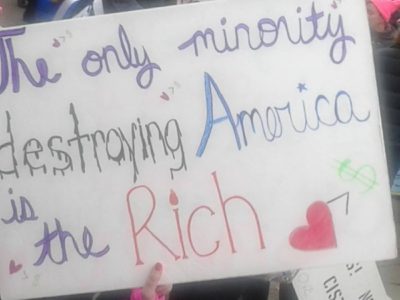 The only minority
destroying America
is the Rich
$
S!
N
CIS